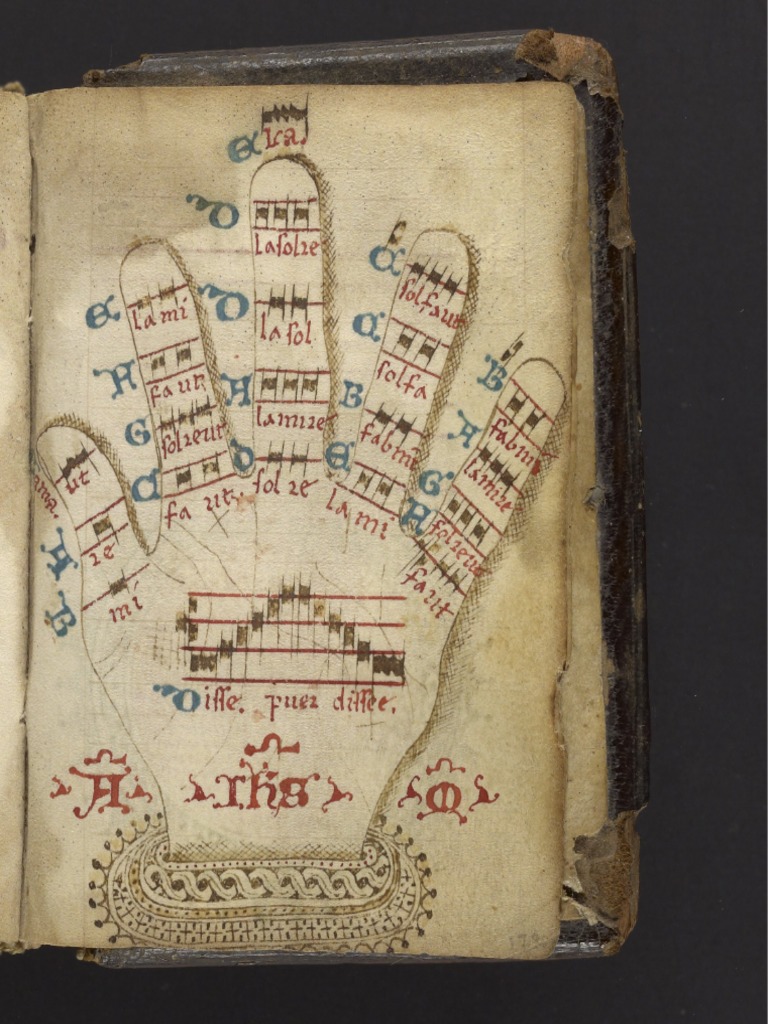 E la.
D la sol re
D la sol
A la mi re
D sol re
E la mi
F fa ut
G sol re ut
C fa ut
C sol fa ut
C sol fa
B fa b mi
E la mi
B fa b mi
A la mi re
G sol re ut
F fa ut
ut
A re
B mi
Disse. puer disse.
A yhs O